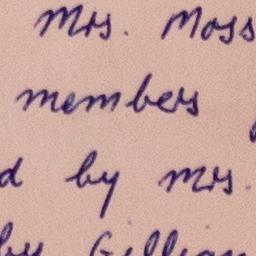 Mrs. Moss
members
d by Mrs.
by Gillian